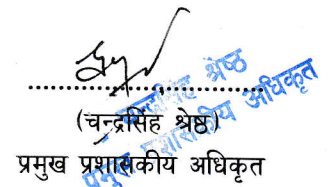 (चन्द्रसिंह श्रेष्ठ)
प्रमुख प्रशासकीय अधिकृत
चन्द्रसिंह श्रेष्ठ
प्रमुख प्रशासकीय अधिकृत